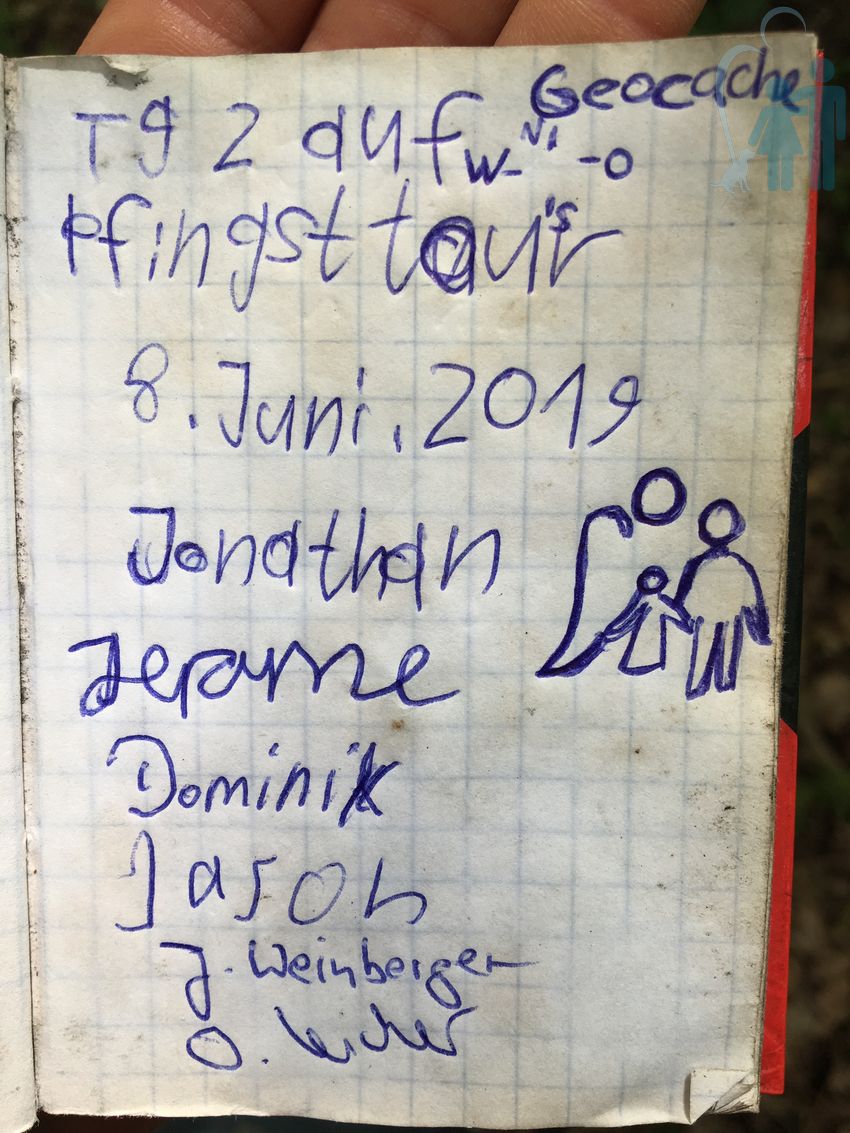 Geocache
TG 2 auf W-NI-O
Pfingsttour
8. Juni. 2019
Jonathan
Jerome
Dominik
Jason
J. Weinberger
O.